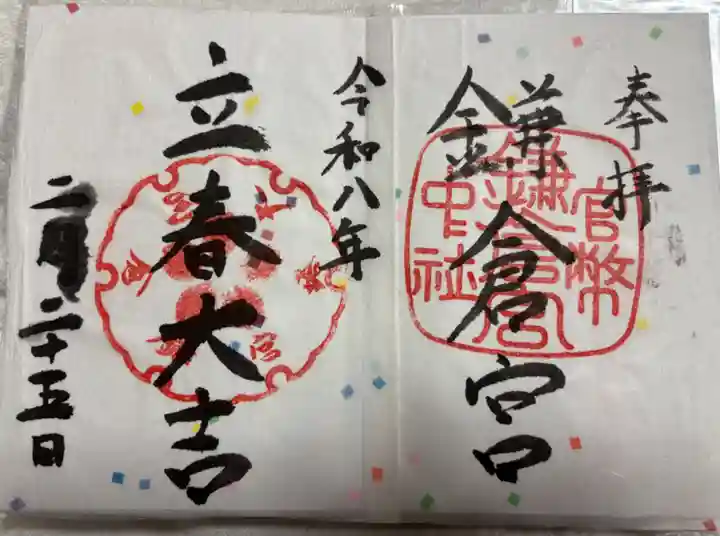 奉拝
鎌倉宮
官幣
鎌倉宮
中社
令和八年
立春大吉
二月二十五日